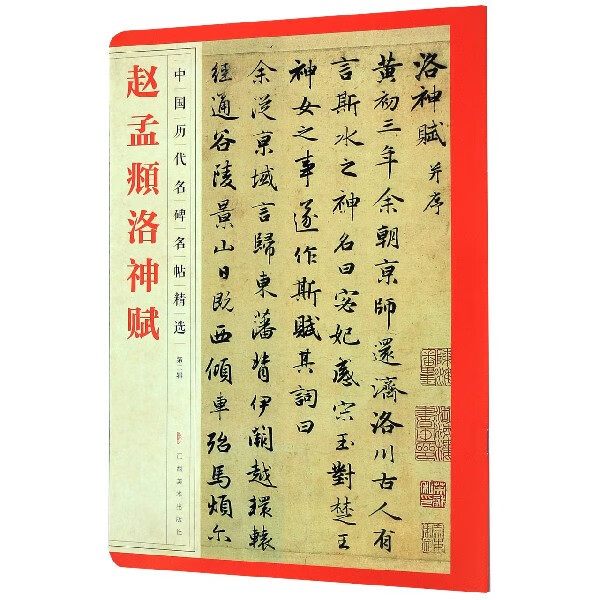 赵孟頫洛神赋
中国历代名碑名帖精选
第二辑
江西美术出版社
洛神賦 并序
黄初三年余朝京師還濟洛川古人有
言斯水之神名曰宓妃感宋玉對楚王
神女之事遂作斯賦其詞曰
余從京域言歸東藩背伊闕越轘轅
經通谷陵景山日既西傾車殆馬煩尔